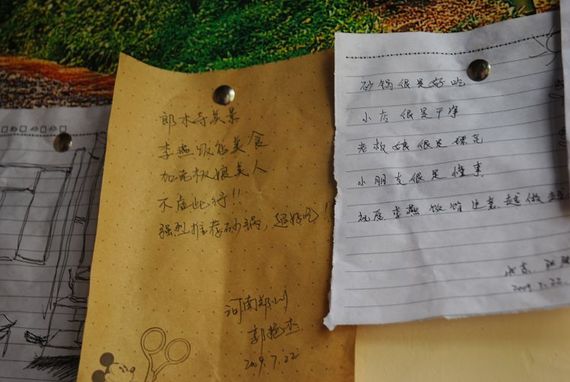 郎木寺美景
李燕饭馆美食
加老板娘美人
不虚此行!!
强烈推荐砂锅,超好吃!
河南郑州
2009.7.22
砂锅很是好吃
小店很是干净
老板娘很是漂亮
小朋友很是懂事
祝愿李燕饭馆生意越做越
2009.7.22.